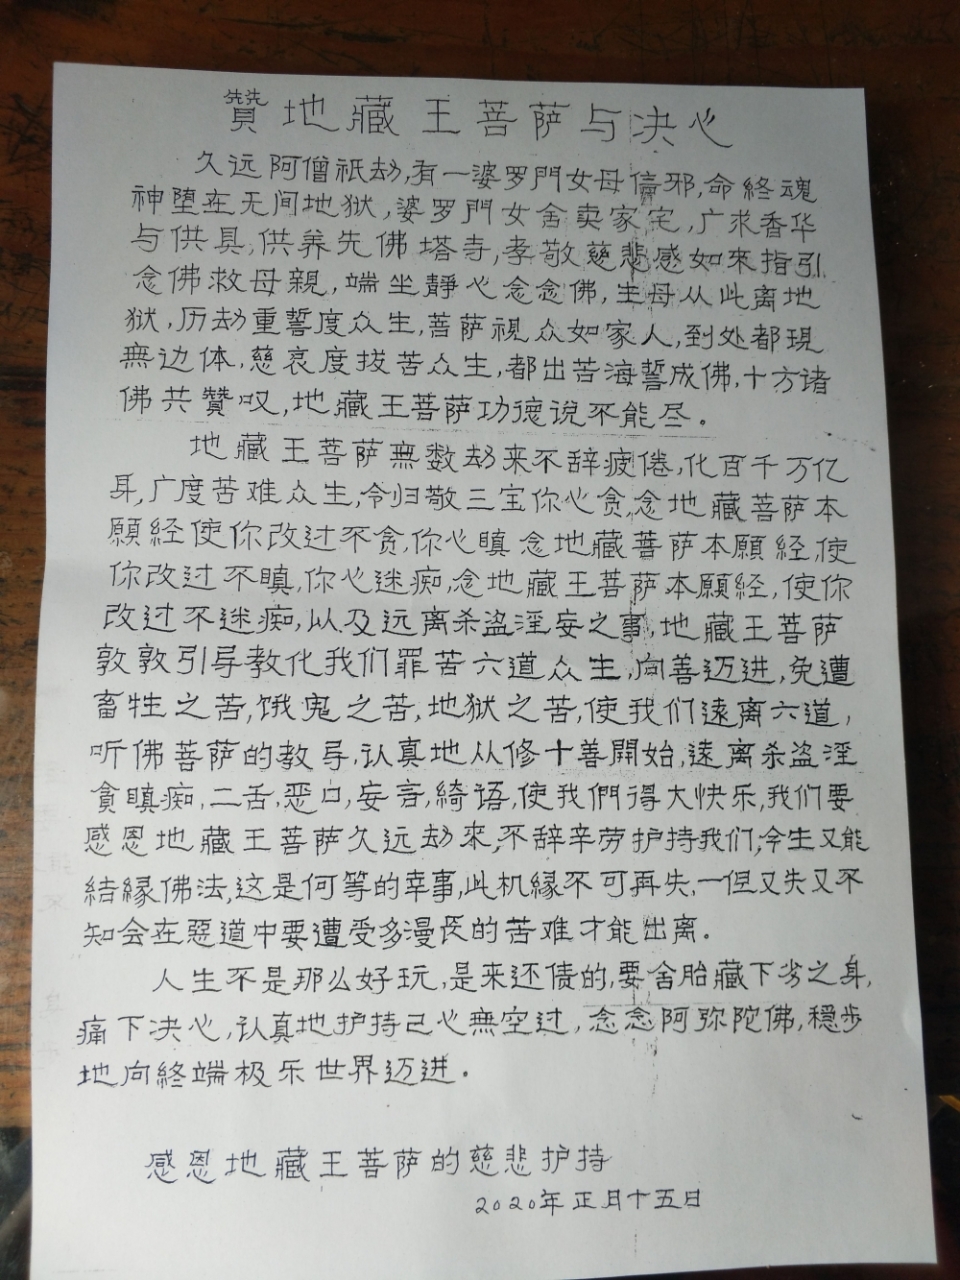 贊地藏王菩萨与决心
久远阿僧祇劫,有一婆罗門女母信邪,命終魂
神堕在无间地狱,婆罗門女舍卖家宅,广求香华
与供具,供养先佛塔寺,孝敬慈悲感如來指引
念佛救母親,端坐靜心念念佛,生母从此离地
狱,历劫重誓度众生,菩萨視众如家人,到处都現
無边体,慈哀度拔苦众生,都出苦海誓成佛,十方诸
佛共贊叹,地藏王菩萨功德说不能尽.
地藏王菩萨無数劫来不辞疲倦,化百千万亿
身,广度苦难众生,令归敬三宝你心贪,念地藏菩萨本
願經使你改过不贪,你心瞋念地藏菩萨本願經,使
你改过不瞋,你心迷痴,念地藏王菩萨本願經,使你
改过不迷痴,以及远离杀盗淫妄之事,地藏王菩萨
敦敦引导教化我们罪苦六道众生,向善迈进,免遭
畜牲之苦,饿鬼之苦,地狱之苦,使我们遠离六道,
听佛菩萨的教导,认真地从修十善開始,遠离杀盗淫
貪瞋痴,二舌,恶口,妄言,綺语,使我們得大快乐,我们要
感恩地藏王菩萨久远劫來,不辞辛劳护持我们,今生又能
結緣佛法,这是何等的幸事,此机緣不可再失,一但又失又不
知会在惡道中要遭受多漫长的苦难才能出离.
人生不是那么好玩,是来还债的,要舍胎藏下劣之身,
痛下决心,认真地护持己心無空过,念念阿弥陀佛,穩步
地向終端极乐世界迈进.
感恩地藏王菩萨的慈悲护持
2020年正月十五日